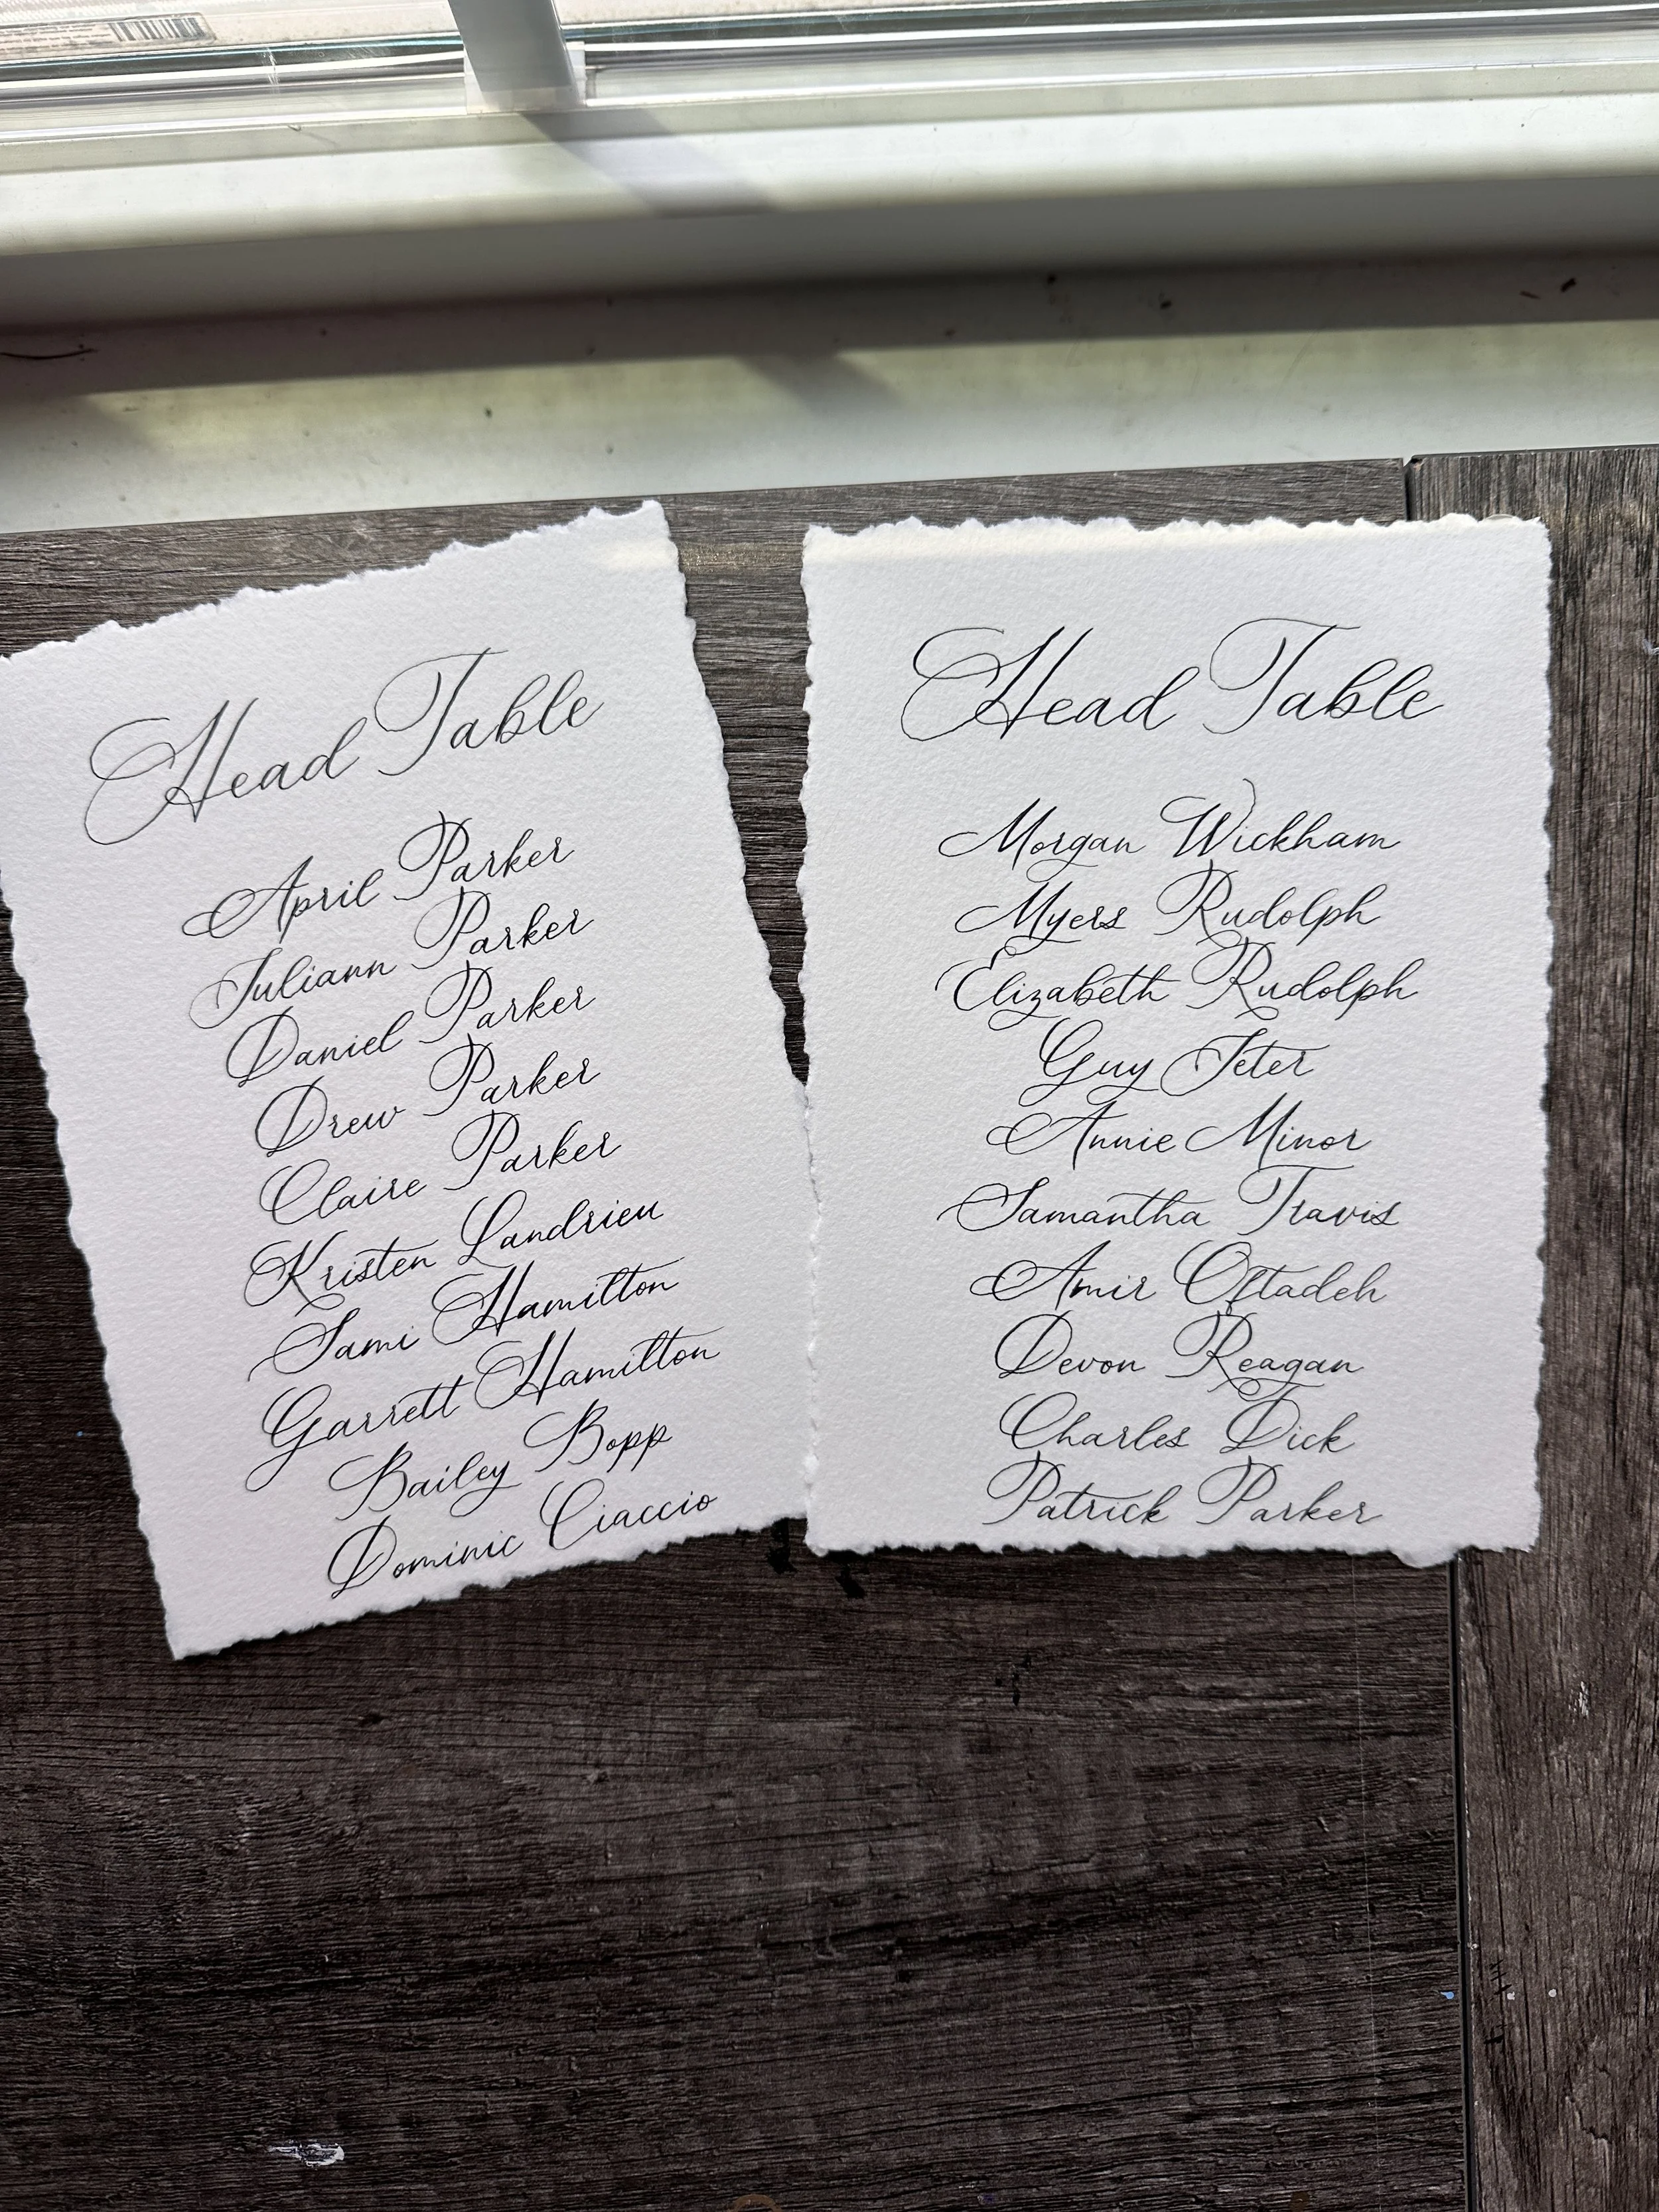 Head Table
April Parker
Juliann Parker
Daniel Parker
Drew Parker
Claire Parker
Kristen Landrieu
Sami Hamilton
Garrett Hamilton
Bailey Bopp
Dominic Ciaccio
Head Table
Morgan Wickham
Myers Rudolph
Elizabeth Rudolph
Guy Jeter
Annie Minor
Samantha Travis
Amir Oftadeh
Devon Reagan
Charles Dick
Patrick Parker